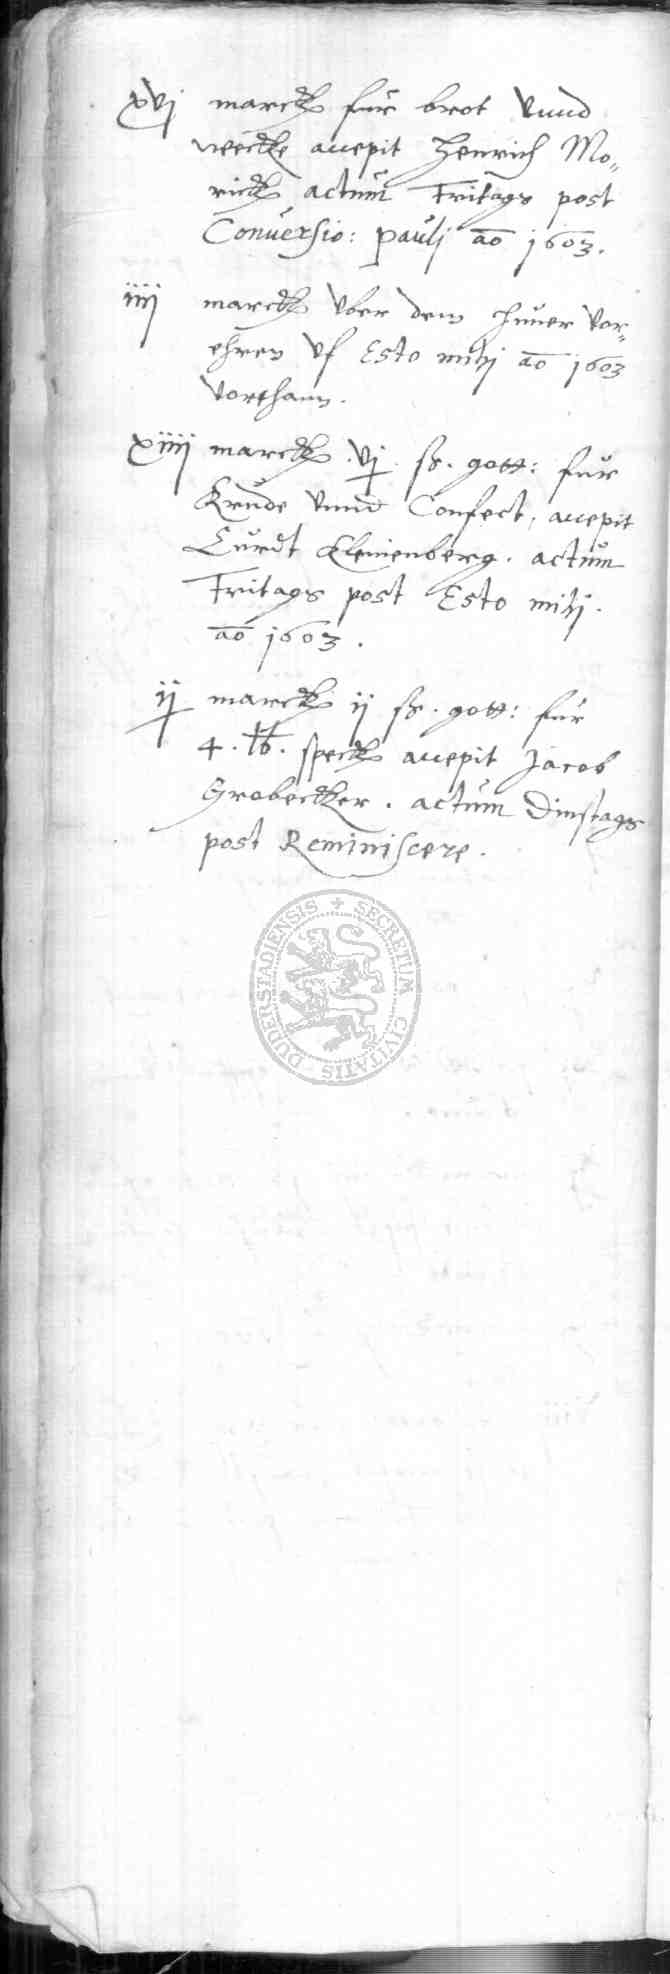 xvj marck für brot vnnd
wecke accepit Henrich Mo„
rick actum Fritags post
Conuersio: pauli ao 1603.
iiij marck vber dem
ehren vf Esto mihj ao 1603
vorthann.
xiiij marck .vj. ss. gott: für
Krude vnnd Confect, accepit
Curdt Klemenberg. actum
Fritags post Esto mihj.
ao 1603.
ij marck ij ss. gott: für
4. lb. speck accepit Jacob
Grobecker. actum Dinstags
post Reminiscere.
SECRETUM CIVITATIS DUDERSTADIENSIS